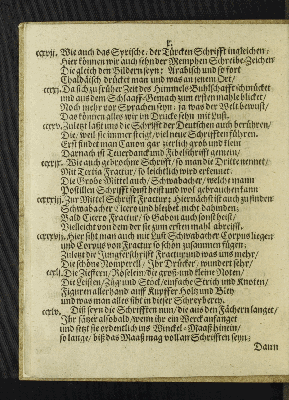 ccxvij. Wie auch das Syrische: der Türcken Schrifft ingleichen:
Hier können wir auch sehn der Memphen Schreibe-Zeichen
Die gleich den Bildern seyn: Arabisch und so fort
Chaldäisch drücket man und was an jenem Ort/
ccxxj. Da sich zu früher Zeit des Himmels Buhlschafft schmücket
und aus dem Schlaaff-Gemach zum ersten mahle blicket/
Noch mehr vor Sprachen seyn: ja was der Welt bewust/
Das können alles wir im Drucke sehn mit Lust.
ccxxv. Zuletzt last uns die Schrifft der Deutschen auch berühren/
Die/ weil sie immer steigt/ viel neue Schrifften führen.
Erst findet man Canon gar zierlich grob und klein
Darnach ist Teuerdanck und Fibelschrifft gemein/
Wie auch gebrochne Schrifft/ so man die Dritte nennet/
Mit Tertia Fractur/ so leichtlich wird erkennet.
Die Grobe Mittel auch/ Schwabacher/ welche mann
Postillen Schrifft sonst heist und wol gebrauchen kann
Zur Mittel Schrifft Fractur: Hiernächst ist auch zu finden
Schwabacher Cicero und bleibet nicht dahinden;
Bald Cicero Fractur/ so Gabon auch sonst heist/
Vielleicht von dem der sie zum ersten mahl abreist.
Hier siht man auch mit Lust Schwabacher Corpus lieg&#101;n
und Corpus von Fractur so schön zusammen fügen;
Zuletzt die Jungferschrifft Fractur und was uns mehr/
Die schöne Nonpareil/ Ihr Drucker/ wundert sehr/
ccxlj. Die Zieffern/ Röselein/ die groß- und kleine Noten/
Die Leisten/ Züg und Stöck/ einfache Strich und Knoten/
Figuren allerhand auff Kupffer Holtz und Bley
und was man alles siht in dieser Schreyberey.
ccxlv. Diß seyn die Schrifften nun/ die aus den Fächern langet/
Ihr Setzer alsobald/ wenn ihr ein Werck anfanget
und setzt sie ordentlich ins Winckel-Maaß hinein/
so lange/ biß das Maaß mag voll an Schrifften seyn;
Dann